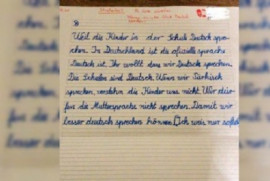 Weil die Kinder in der Schule Deutsch spre-
chen. In Deutschland ist die ofizielle sprache
Deutsch ist. Ihr wollt dass wir Deutsch sprechen.
Die Schulen sind Deutsch. Wenn wir Türkisch
sprechen verstehn die Kinder uns nicht. Wir dür-
fen die Muttersprache nicht sprechen. Damit wir
besser deutsch sprechen können. Ich weis nur